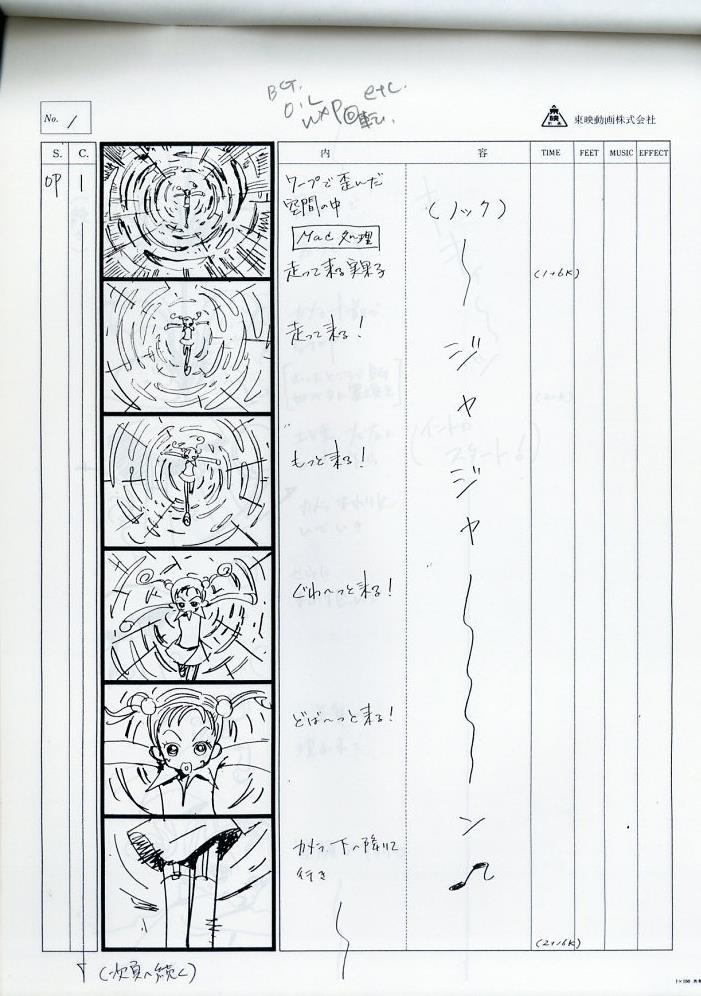 BG.
OiL
WXP回転.
etc.
No. 1
東映動画株式会社
S. C. 内 容 TIME FEET MUSIC EFFECT
OP 1
ワープで歪んだ
空間の中
(ノック)
Mac処理
走って来る実果子
(1+6K)
走って来る!
ジ
ャ
もっと来る!
ジ
ャ
ぐわ〜っと来る!
どば〜っと来る!
ン
カメラ下へ降りて
行き
(2+16K)
(次頁へ続く)